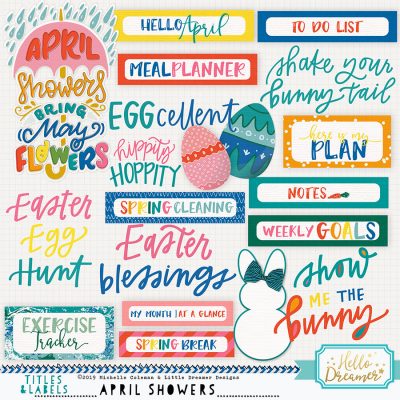 APRIL
Showers
BRING
May
FLOWERS
HELLO April
TO DO LIST
MEAL PLANNER
shake your
bunny tail
EGGcellent
hippity
HOPPITY
here is my
PLAN
NOTES
Easter
Egg
Hunt
SPRING CLEANING
Easter
blessings
WEEKLY GOALS
show
ME THE
bunny
EXERCISE
Tracker
MY MONTH | AT A GLANCE
SPRING BREAK
Hello
Dreamer
©2019 Michelle Coleman & Little Dreamer Designs
TITLES
&LABELS
APRIL SHOWERS